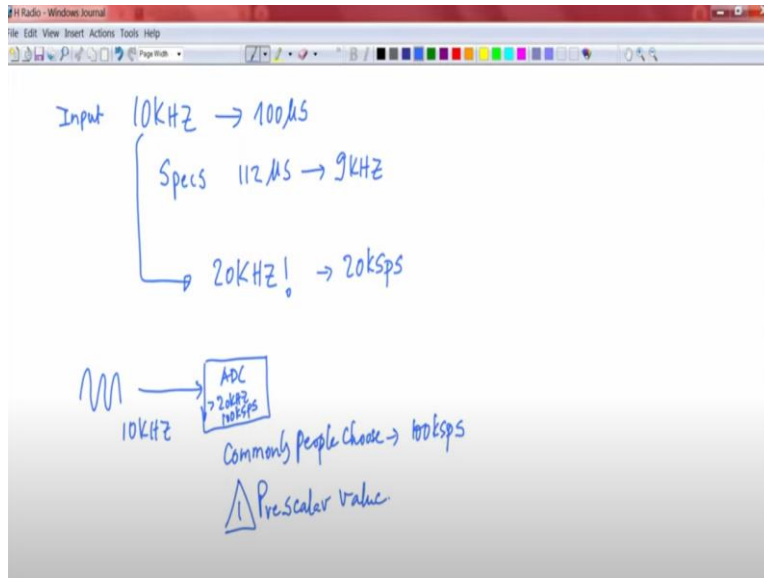 H Radio - Windows Journal
File Edit View Insert Actions Tools Help
Page Width
Input 10KHZ → 100μs
Specs 112 μs → 9KHZ
20KHZ! → 20ksps
ADC
>20kHz
100ksps
10KHZ
Commonly people choose → 100ksps
! Prescalar value.